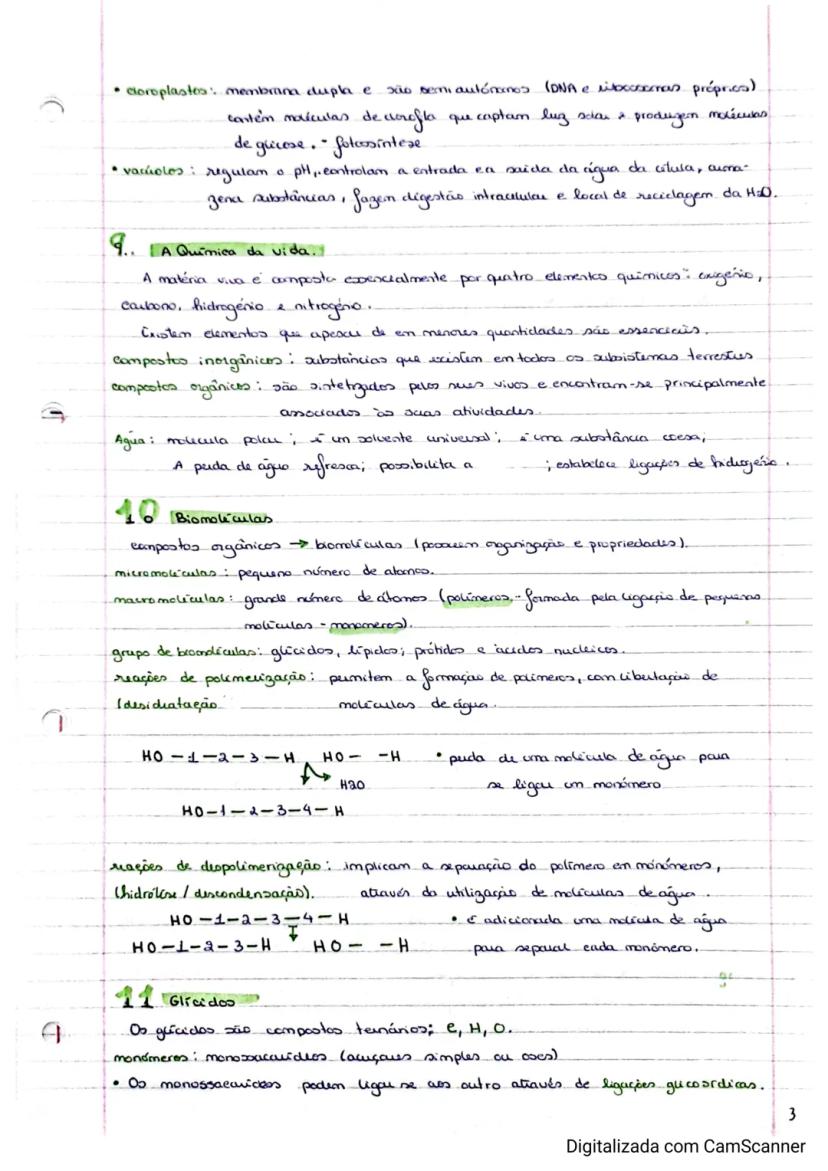 • cloroplastos: membrana dupla e são semi autónomos (DNA e ribossomas próprios)
contêm moléculas de clorofila que captam luz solar e produzem moléculas
de glicose. - fotossíntese
• vacúolos: regulam o pH, controlam a entrada e a saida da água da célula, arma-
zena substâncias, fazem digestão intracelular e local de reciclagem da H2O.
9.. A Química da vida.
A matéria viva é composta essencialmente por quatro elementos químicos: oxigénio,
carbono, hidrogénio e nitrogénio.
Existem elementos que apesar de em menores quantidades são essenciais.
compostos inorgânicos: substâncias que existem em todos os subsistemas terrestres
compostos orgânicos: são sintetizados pelos seres vivos e encontram-se principalmente
associados às suas atividades.
Água: molécula polar; é um solvente universal; é uma substância coesa;
A perda de água refresca; possibilita a ; estabelece ligações de hidrogénio.
10 Biomoléculas
compostos orgânicos → biomoléculas (possuem organização e propriedades).
micromoléculas: pequeno número de átomos.
macromoléculas: grande número de átomos (polímeros - formada pela ligação de pequenas
moléculas - monomeros).
grupo de biomoléculas: glícidos, lípidos; prótidos e ácidos nucleicos.
reações de polimerização: permitem a formação de polímeros, com libertação de
(desidratação moléculas de água.
HO - 1 - 2 - 3 - H HO - - H • perda de uma molécula de água para
H2O se ligar um monómero
HO - 1 - 2 - 3 - 4 - H
reações de despolimerização: implicam a separação do polímero em monómeros,
(hidrólise / descondensação). através da utilização de moléculas de água.
HO - 1 - 2 - 3 - 4 - H • é adicionada uma molécula de água
HO - 1 - 2 - 3 - H HO - - H para separar cada monómero.
11 Glícidos
Os glícidos são compostos ternários; C, H, O.
monómeros: monossacarídeos (açúcares simples ou oses)
• Os monossacarídeos podem ligar se aos outro através de ligações glicosídicas.
3
Digitalizada com CamScanner